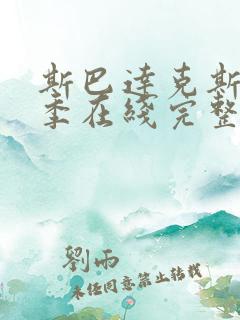 斯巴达克斯
季在线完整
刘雨
未经同意禁止转载